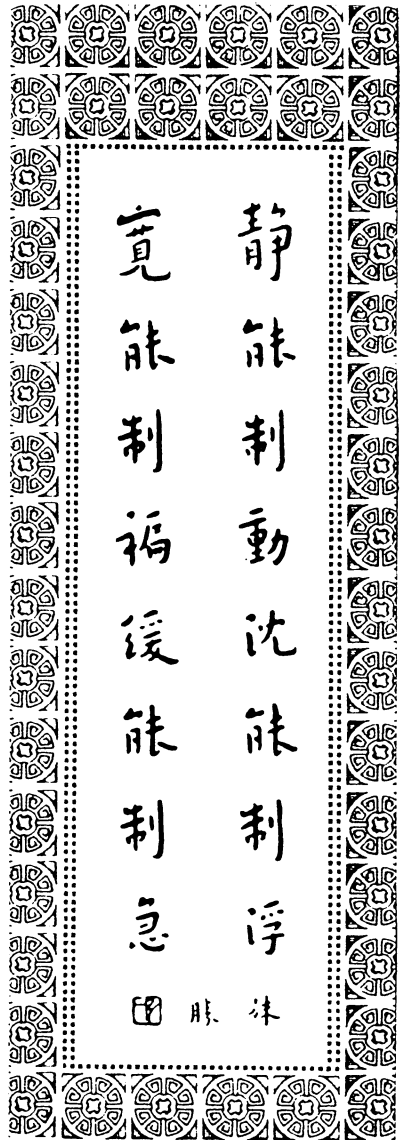 静能制動沈能制浮
寬能制褊緩能制急